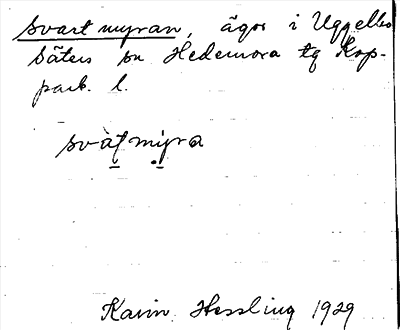 Svartmyran, ägor i Uggelbo
Säters sn Hedemora tg Kop-
parb. l.
svàt myra
Karin Hessling 1929